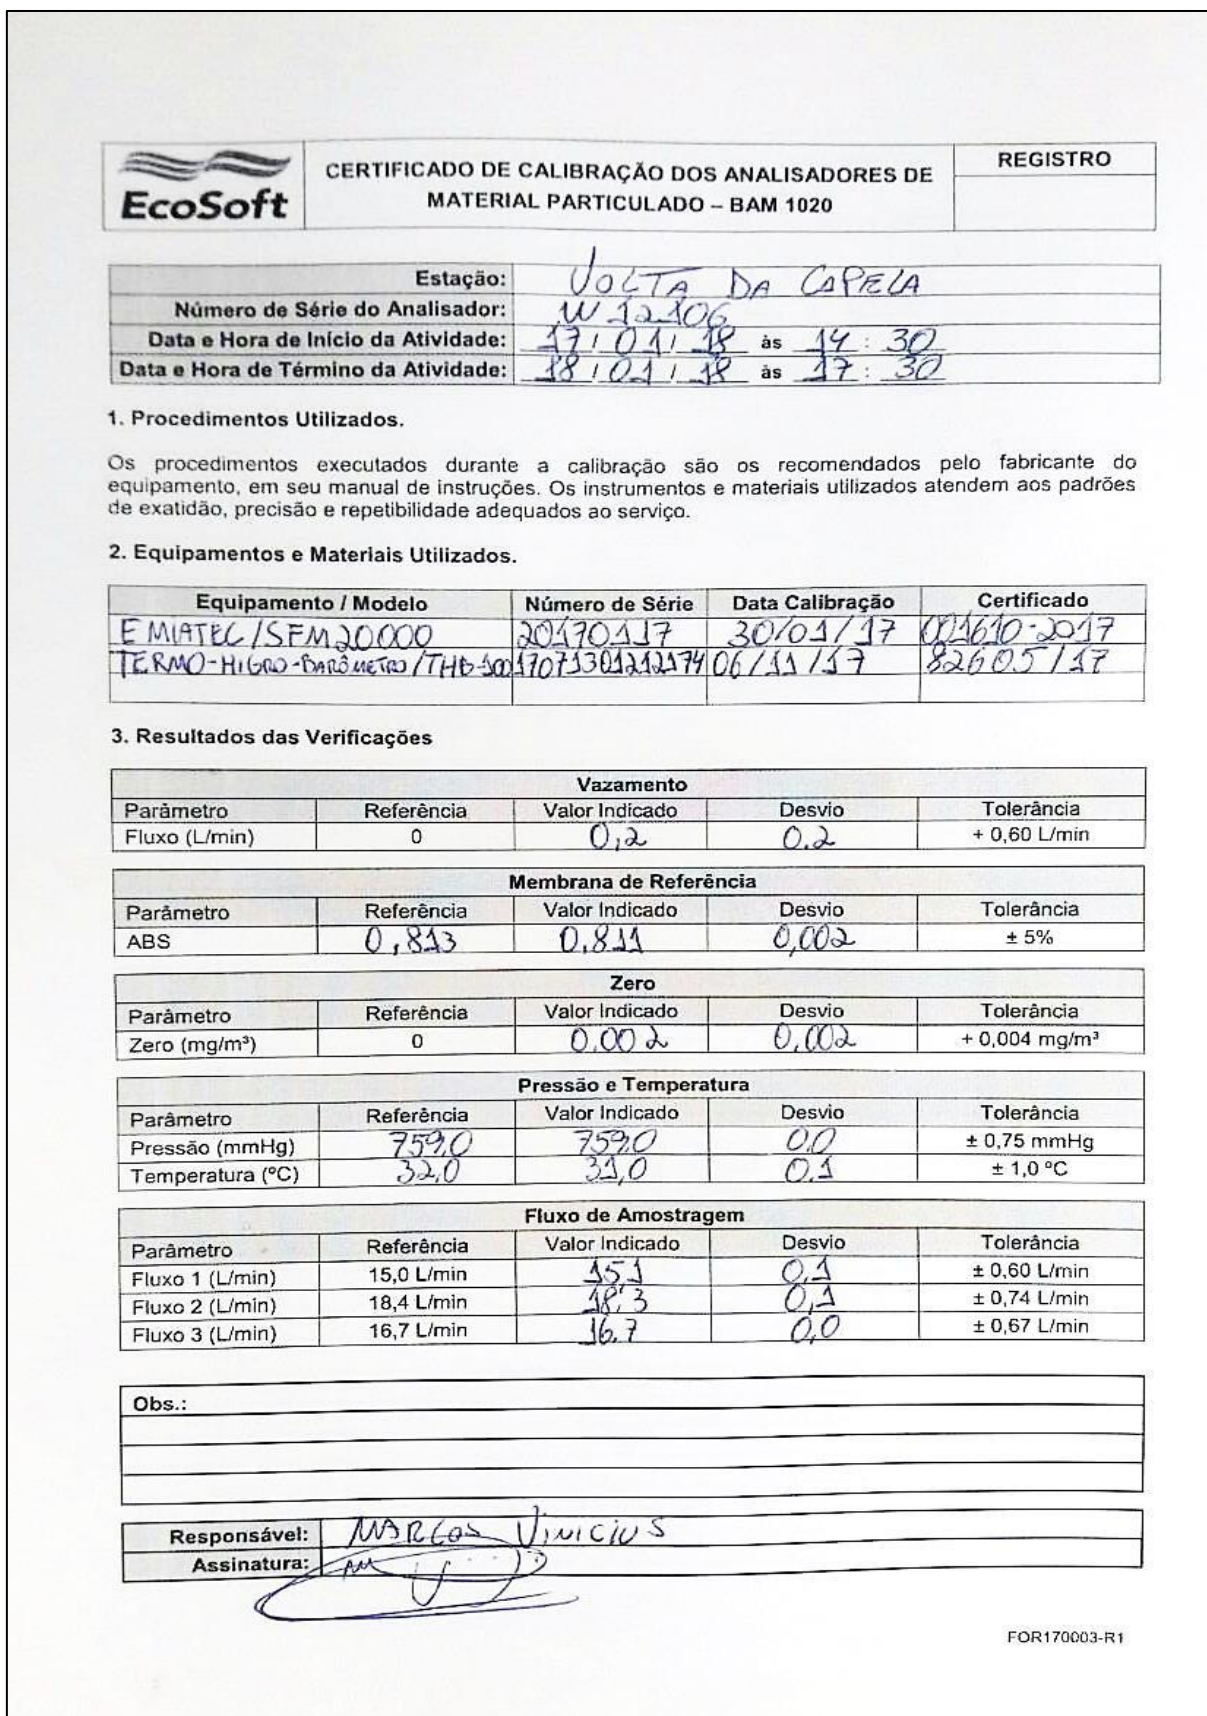 EcoSoft
CERTIFICADO DE CALIBRAÇÃO DOS ANALISADORES DE
MATERIAL PARTICULADO – BAM 1020
REGISTRO
Estação: VOLTA DA CAPELA
Número de Série do Analisador: W 12106
Data e Hora de Início da Atividade: 17/01/18 às 14:30
Data e Hora de Término da Atividade: 18/01/18 às 17:30
1. Procedimentos Utilizados.
Os procedimentos executados durante a calibração são os recomendados pelo fabricante do
equipamento, em seu manual de instruções. Os instrumentos e materiais utilizados atendem aos padrões
de exatidão, precisão e repetibilidade adequados ao serviço.
2. Equipamentos e Materiais Utilizados.
Equipamento / Modelo Número de Série Data Calibração Certificado
EMIATEC/SFM20000 20170117 30/01/17 001610-2017
TERMO-HIGRO-BARÔMETRO/THB-100 17071301212174 06/11/17 82605/17
3. Resultados das Verificações
Vazamento
Parâmetro Referência Valor Indicado Desvio Tolerância
Fluxo (L/min) 0 0,2 0.2 + 0,60 L/min
Membrana de Referência
Parâmetro Referência Valor Indicado Desvio Tolerância
ABS 0,813 0.811 0,002 ± 5%
Zero
Parâmetro Referência Valor Indicado Desvio Tolerância
Zero (mg/m³) 0 0.002 0,002 + 0,004 mg/m³
Pressão e Temperatura
Parâmetro Referência Valor Indicado Desvio Tolerância
Pressão (mmHg) 759,0 759,0 0,0 ± 0,75 mmHg
Temperatura (ºC) 32,0 31,0 0.1 ± 1,0 ºC
Fluxo de Amostragem
Parâmetro Referência Valor Indicado Desvio Tolerância
Fluxo 1 (L/min) 15,0 L/min 15,1 0,1 ± 0,60 L/min
Fluxo 2 (L/min) 18,4 L/min 18,3 0,1 ± 0,74 L/min
Fluxo 3 (L/min) 16,7 L/min 16.7 0,0 ± 0,67 L/min
Obs.:
Responsável: MARCOS VINICIUS
Assinatura:
FOR170003-R1